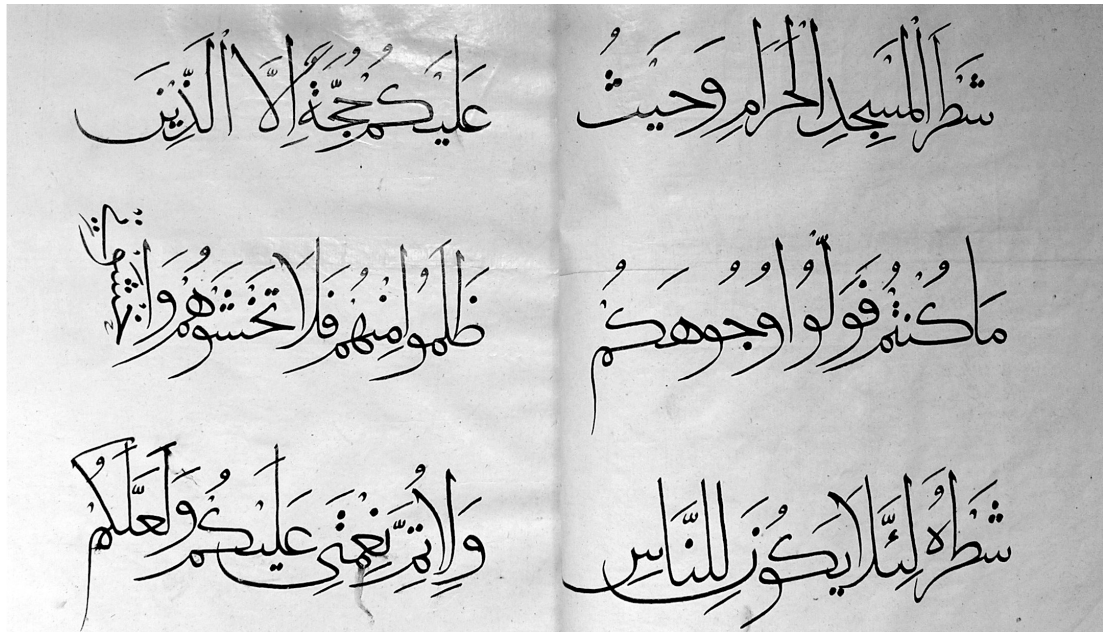 شَطْرَ الْمَسْجِدِ الْحَرَامِ وَحَيْثُ
مَا كُنْتُمْ فَوَلُّوْا وُجُوهَكُمْ
شَطْرَهُ لِئَلَّا يَكُوْنَ لِلنَّاسِ
عَلَيْكُمْ حُجَّةٌ إِلَّا الَّذِيْنَ
ظَلَمُوا مِنْهُمْ فَلَا تَخْشَوْهُمْ وَاخْشَوْنِي
وَلِأُتِمَّ نِعْمَتِي عَلَيْكُمْ وَلَعَلَّكُمْ